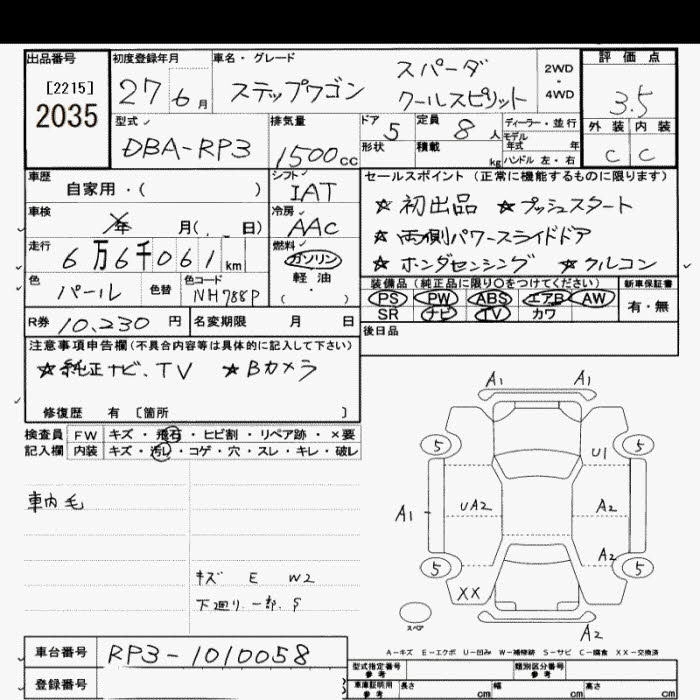 出品番号 初度登録年月 車名・グレード 評価点
[2215] 27 6月 ステップワゴン スパーダ 2WD・4WD 3.5
2035 クールスピリット
型式 排気量 ドア 5 定員 8人 ディーラー・並行 外装 内装
DBA-RP3 1500cc 形状 積載 kg モデル年式 年 C C
ハンドル 左・右
車歴 シフト セールスポイント(正常に機能するものに限ります)
自家用・( ) IAT ☆初出品 ☆プッシュスタート
車検 年 月( . 日) 冷房 AAC ☆両側パワースライドドア
走行 6万6千061km 燃料 ガソリン 軽油・( ) ☆ホンダセンシング ☆クルコン
色 パール 色替 色コード NH788P 装備品(純正品に限り○をつけてください) 新車保証書
PS PW ABS エアB AW 有・無
SR ナビ TV カワ
R券 10,230円 名変期限 月 日 後日品
注意事項申告欄(不具合内容等は具体的に記入して下さい)
☆純正ナビ、TV ☆Bカメラ
修復歴 有 〔箇所 〕
検査員 FW キズ・飛石・ヒビ割・リペア跡・×要
記入欄 内装 キズ・汚レ・コゲ・穴・スレ・キレ・破レ
車内毛
キズ E W2
下廻り一部、S
A1 A1
5 5
U1
A1 UA2 A2
A2
5 5
XX
スペア
A2
A-キズ E-エクボ U-凹み W-補修跡 S-サビ C-腐食 XX-交換済
車台番号 RP3-1010058 型式指定番号 参考 類別区分番号 参考
登録番号 車庫証明用 参考 長さ cm 幅 cm 高さ cm